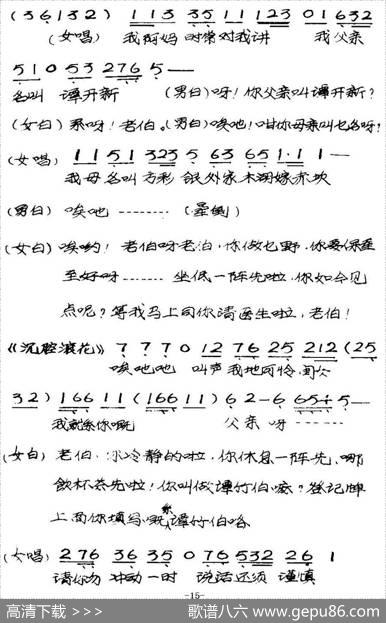 (3 6 1 3 2) 1 1 3 3 5 1 1 1 2 3 0 1 6 3 2
(女唱) 我阿妈时常对我讲 我父亲
5 1 0 5 3 2 7 6 5 —
名叫 谭开新 (男白)呀!你父亲叫谭开新?
(女白)系呀!老伯。(男白)唉吔!咁你母亲叫乜名呀?
(女唱) 1 1 5 1 3 2 3 5 6 3 6 5 1·1 1 —
我母名叫方彩 外家木 嫁
(男白) 唉吔 -------- (晕倒)
(女白)唉哟! 老伯呀老伯,你做乜野,你
至好呀 ------ 坐低一阵先啦,你如今见
点呢?等我马上同你请医生啦,老伯!
《沉腔滚花》7 7 7 0 1 2 7 6 2 5 2 1 2 (2 5
唉吔吔 叫声我地阿伶
3 2) 1 6 6 1 1 (1 6 6 1 1) 6 2 — 6 6 5 4 5 —
我就系你嘅 父亲 呀 ------
(女白) 老伯,冷静的啦,你休息一阵先,
饮杯茶先啦!你叫做谭竹伯 登记牌
上面你填写嘅系谭竹伯
(女唱) 2 7 6 3 6 3 5 0 7 6 5 3 2 2 6 1
请你勿 冲动一时 说话还须 谨慎
-15-
高清下载 >>>
歌谱八六 www.gepu86.com